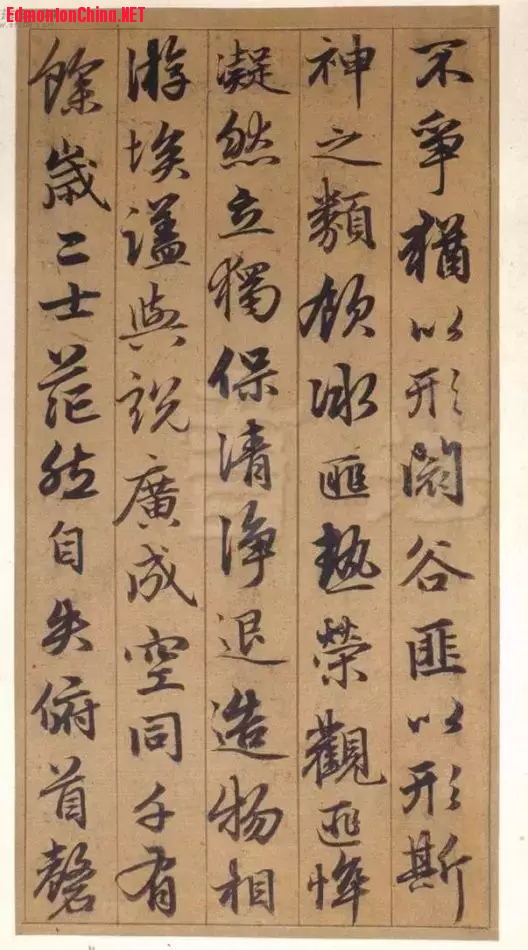 EdmontonChina.NET
不争猶以形閟谷匪以形斯
神之類頫冰匪熱榮觀匪惟
凝然立獨保清浄退造物相
游埃𡏖與説廣成空同千有
餘歲二士茫然自失俯首磬